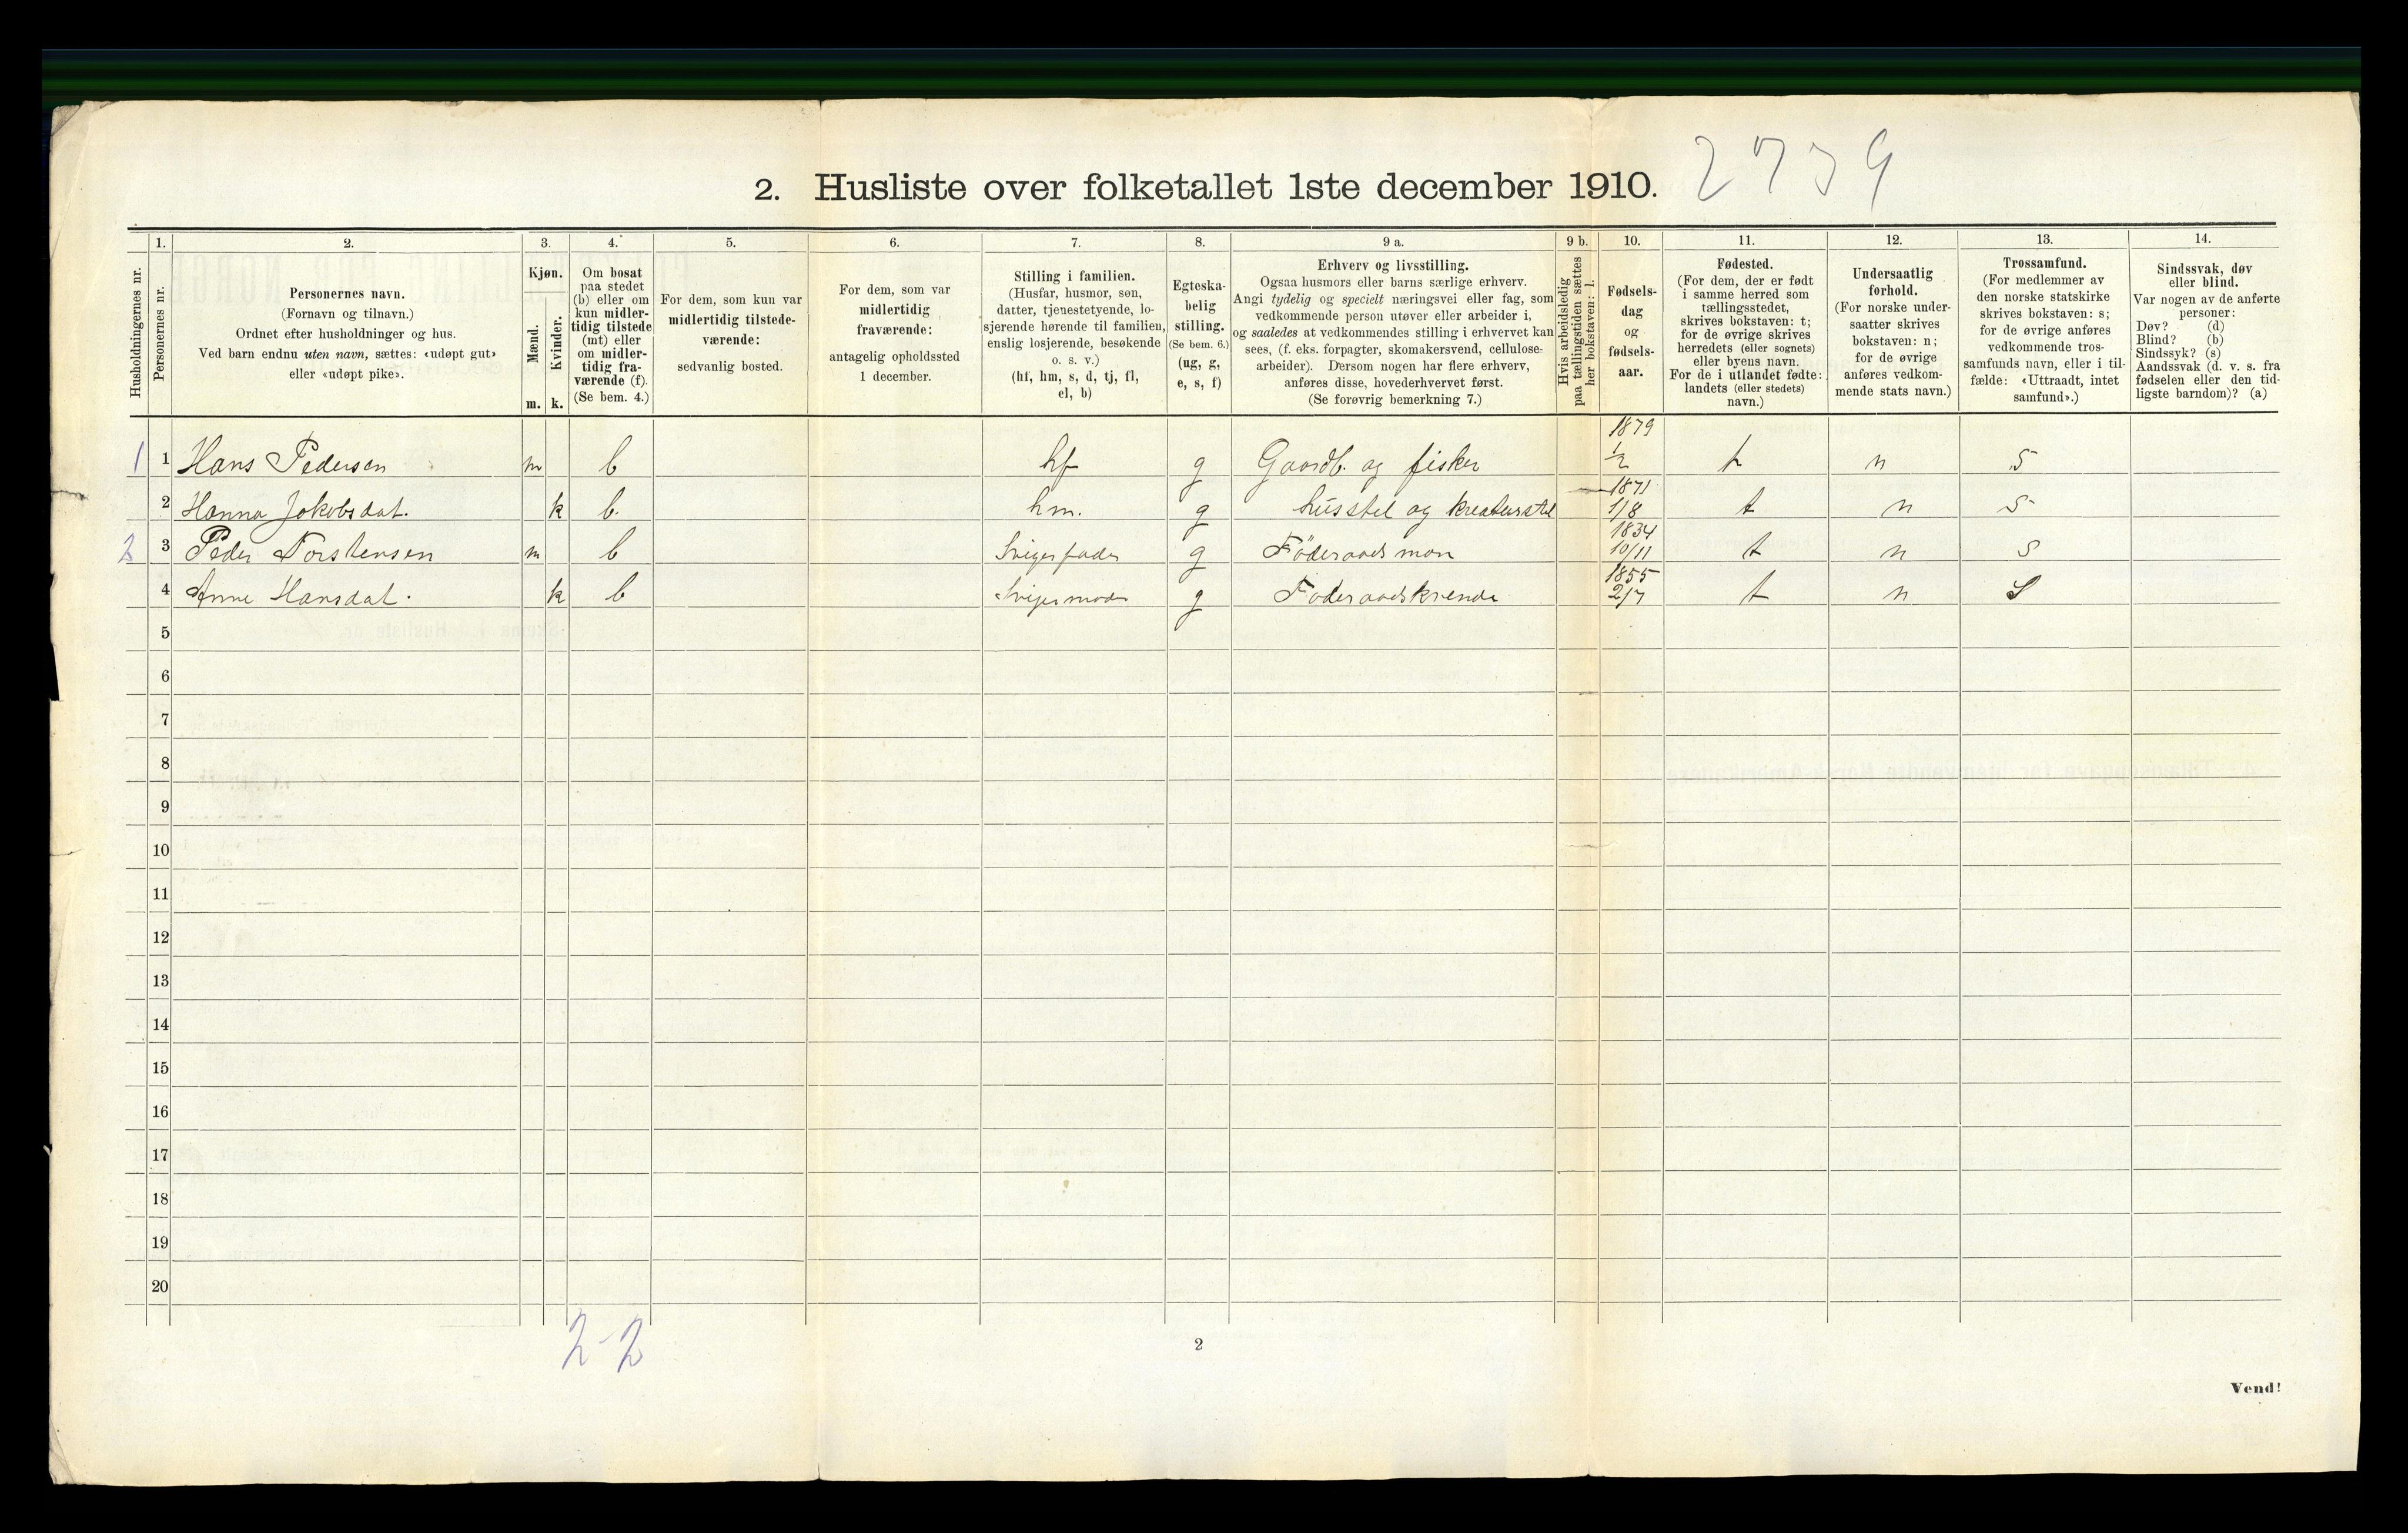 2. Husliste over folketallet 1ste december 1910. 2739
1. 2. 3. 4. 5. 6. 7. 8. 9 a. 9 b. 10. 11. 12. 13. 14.
Husholdningernes nr.
Personernes nr.
Personernes navn.
(Fornavn og tilnavn.)
Ordnet efter husholdninger og hus.
Ved barn endnu uten navn, sættes: «udøpt gut»
eller «udøpt pike».
Kjøn.
Mænd.
Kvinder.
m. k.
Om bosat
paa stedet
(b) eller om
kun midler-
tidig tilstede
(mt) eller
om midler-
tidig fra-
værende (f).
(Se bem. 4.)
For dem, som kun var
midlertidig tilstede-
værende:
sedvanlig bosted.
For dem, som var
midlertidig
fraværende:
antagelig opholdssted
1 december.
Stilling i familien.
(Husfar, husmor, søn,
datter, tjenestetyende, lo-
sjerende hørende til familien,
enslig losjerende, besøkende
o. s. v.)
(hf, hm, s, d, tj, fl,
el, b)
Egteska-
belig
stilling.
(Se bem. 6.)
(ug, g,
e, s, f)
Erhverv og livsstilling.
Ogsaa husmors eller barns særlige erhverv.
Angi tydelig og specielt næringsvei eller fag, som
vedkommende person utøver eller arbeider i,
og saaledes at vedkommendes stilling i erhvervet kan
sees, (f. eks. forpagter, skomakersvend, cellulose-
arbeider). Dersom nogen har flere erhverv,
anføres disse, hovederhvervet først.
(Se forøvrig bemerkning 7.)
Hvis arbeidsledig
paa tællingstiden sættes
her bokstaven: l.
Fødsels-
dag
og
fødsels-
aar.
Fødested.
(For dem, der er født
i samme herred som
tællingsstedet,
skrives bokstaven: t;
for de øvrige skrives
herredets (eller sognets)
eller byens navn.
For de i utlandet fødte:
landets (eller stedets)
navn.)
Undersaatlig
forhold.
(For norske under-
saatter skrives
bokstaven: n;
for de øvrige
anføres vedkom-
mende stats navn.)
Trossamfund.
(For medlemmer av
den norske statskirke
skrives bokstaven: s;
for de øvrige anføres
vedkommende tros-
samfunds navn, eller i til-
fælde: «Uttraadt, intet
samfund».)
Sindssvak, døv
eller blind.
Var nogen av de anførte
personer:
Døv? (d)
Blind? (b)
Sindssyk? (s)
Aandssvak (d. v. s. fra
fødselen eller den tid-
ligste barndom)? (a)
1 1 Hans Pedersen m b hf g Gaardb. og fisker 1879 1/2 t n s
2 Hanna Jokobsdat. k b. hm. g husstel og kreaturstel 1871 1/8 t n s
2 3 Peder Torstensen m b Svigerfader g Föderaads man 1834 10/11 t n s
4 Anne Hansdat. k b Svigermoder g Foderaadskvende 1855 2/7 t n S
5
6
7
8
9
10
11
12
13
14
15
16
17
18
19
20
2-2
2
Vend!